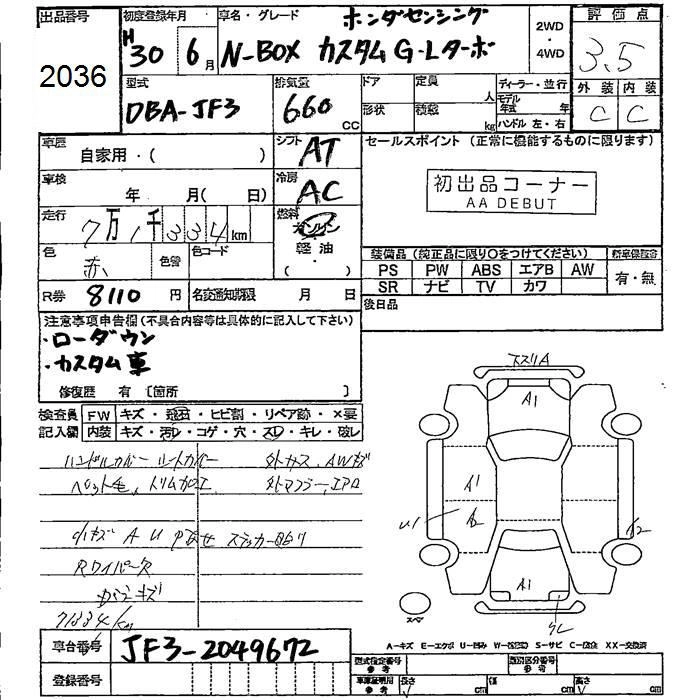 出品番号
2036
初度登録年月
H30 6月
車名・グレード
ホンダセンシング
N-BOX カスタムG・Lターボ
2WD
・
4WD
評価点
3.5
外装 内装
C C
型式
DBA-JF3
排気量
660
CC
ドア
形状
定員
人
積載
kg
ディーラー・並行
モデル年式 年
ハンドル 左・右
車歴
自家用・( )
シフト
AT
車検
年 月( 日)
冷房
AC
走行
7万1千334km
燃料
ガソリン
軽油
・
( )
色
赤
色替
色コード
R券 8110 円
名変通知期限 月 日
セールスポイント (正常に機能するものに限ります)
初出品コーナー
AA DEBUT
装備品 (純正品に限り○をつけてください)
PS PW ABS エアB AW
SR ナビ TV カワ
新車保証書
有・無
後日品
注意事項申告欄(不具合内容等は具体的に記入して下さい)
・ローダウン
・カスタム車
修復歴 有 〔箇所 〕
検査員
記入欄
FW キズ・飛石・ヒビ割・リペア跡・×要
内装 キズ・汚レ・コゲ・穴・スレ・キレ・破レ
ハンドルカバー シートカバー
ペット毛、トリム加工
外ガス、AWキズ
外マフラー、エアロ
小キズ A U
ステッカー
Rワイパー欠
ガラスキズ
71334km
ススリA
A1
A1
A2
U1
A1
スペ
A-キズ E-エクボ U-凹み W-補修跡 S-サビ C-腐蝕 XX-交換済
車台番号 JF3-2049672
登録番号
型式指定番号
参考
類別区分番号
参考
車庫証明用
参考
長さ cm
幅 cm
高さ cm